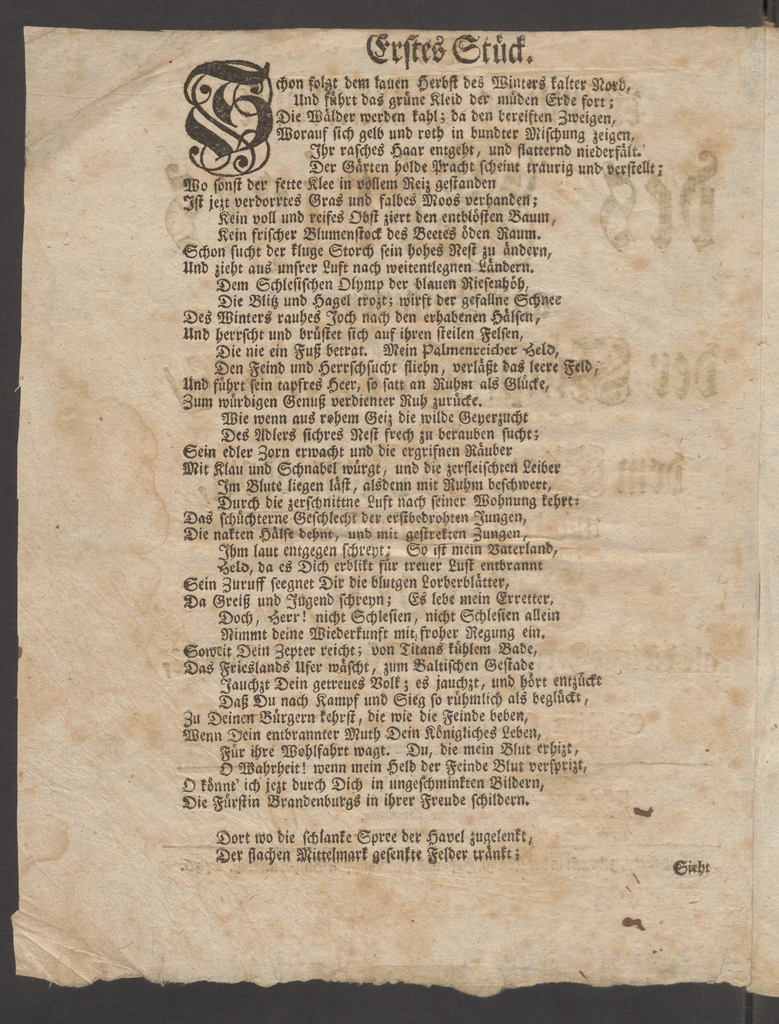 Erstes Stück.
Schon folgt dem lauen Herbst des Winters kalter Nord,
Und führt das grüne Kleid der müden Erde fort;
Die Wälder werden kahl; da den bereiften Zweigen,
Worauf sich gelb und roth in bundter Mischung zeigen,
Ihr rasches Haar entgeht, und flatternd niederfält.
Der Gärten holde Pracht scheint traurig und verstellt;
Wo sonst der fette Klee in vollem Reiz gestanden
Ist jezt verdorrtes Gras und falbes Moos verhanden;
Kein voll und reifes Obst ziert den entblösten Baum,
Kein frischer Blumenstock des Beetes öden Raum.
Schon sucht der kluge Storch sein hohes Nest zu ändern,
Und zieht aus unsrer Luft nach weitentlegnen Ländern.
Dem Schlesischen Olymp der blauen Riesenhöh,
Die Blitz und Hagel trozt; wirft der gefallne Schnee
Des Winters rauhes Joch nach den erhabenen Hälsen,
Und herrscht und brüstet sich auf ihren steilen Felsen,
Die nie ein Fuß betrat. Mein Palmenreicher Held,
Den Feind und Herrschsucht fliehn, verläßt das leere Feld,
Und führt sein tapfres Heer, so satt an Ruhm als Glücke,
Zum würdigen Genuß verdienter Ruh zurücke.
Wie wenn aus rohem Geiz die wilde Geyerzucht
Des Adlers sichres Nest frech zu berauben sucht;
Sein edler Zorn erwacht und die ergrifnen Räuber
Mit Klau und Schnabel würgt, und die zerfleischten Leiber
Im Blute liegen läst, alsdenn mit Ruhm beschwert,
Durch die zerschnittne Luft nach seiner Wohnung kehrt:
Das schüchterne Geschlecht der erstbedrohten Jungen,
Die nakten Hälse dehnt, und mit gestrekten Zungen,
Ihm laut entgegen schreyt; So ist mein Vaterland,
Held, da es Dich erblikt für treuer Lust entbrannt
Sein Zuruff seegnet Dir die blutgen Lorberblätter,
Da Greiß und Jugend schreyn; Es lebe mein Erretter,
Doch, Herr! nicht Schlesien, nicht Schlesien allein
Nimmt deine Wiederkunft mit froher Regung ein.
Soweit Dein Zepter reicht; von Titans kühlem Bade,
Das Frieslands Ufer wäscht, zum Baltischen Gestade
Jauchzt Dein getreues Volk; es jauchzt, und hört entzückt
Daß Du nach Kampf und Sieg so rühmlich als beglückt,
Zu Deinen Bürgern kehrst, die wie die Feinde beben,
Wenn Dein entbrannter Muth Dein Königliches Leben,
Für ihre Wohlfahrt wagt. Du, die mein Blut erhizt,
O Wahrheit! wenn mein Held der Feinde Blut versprizt,
O könnt' ich jezt durch Dich in ungeschminkten Bildern,
Die Fürstin Brandenburgs in ihrer Freude schildern.
Dort wo die schlanke Spree der Havel zugelenkt,
Der flachen Mittelmark gesenkte Felder tränkt;
Sieht